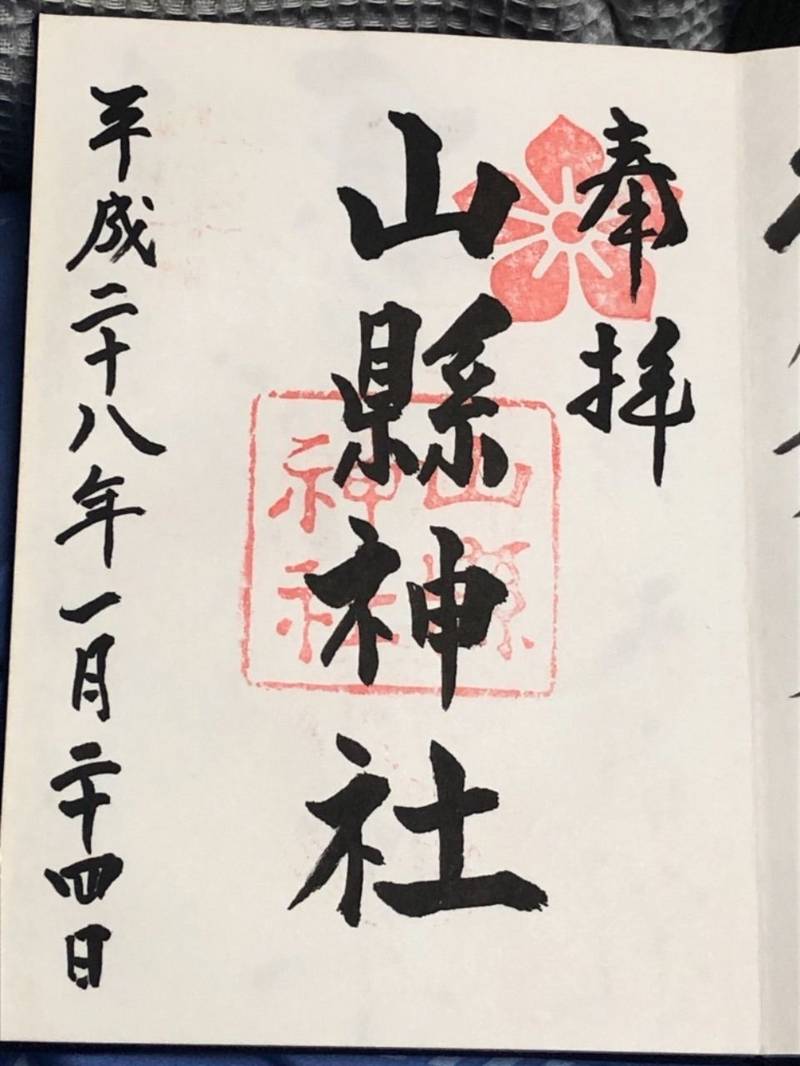 奉拝
山縣神社
山縣神社
平成二十八年一月二十四日